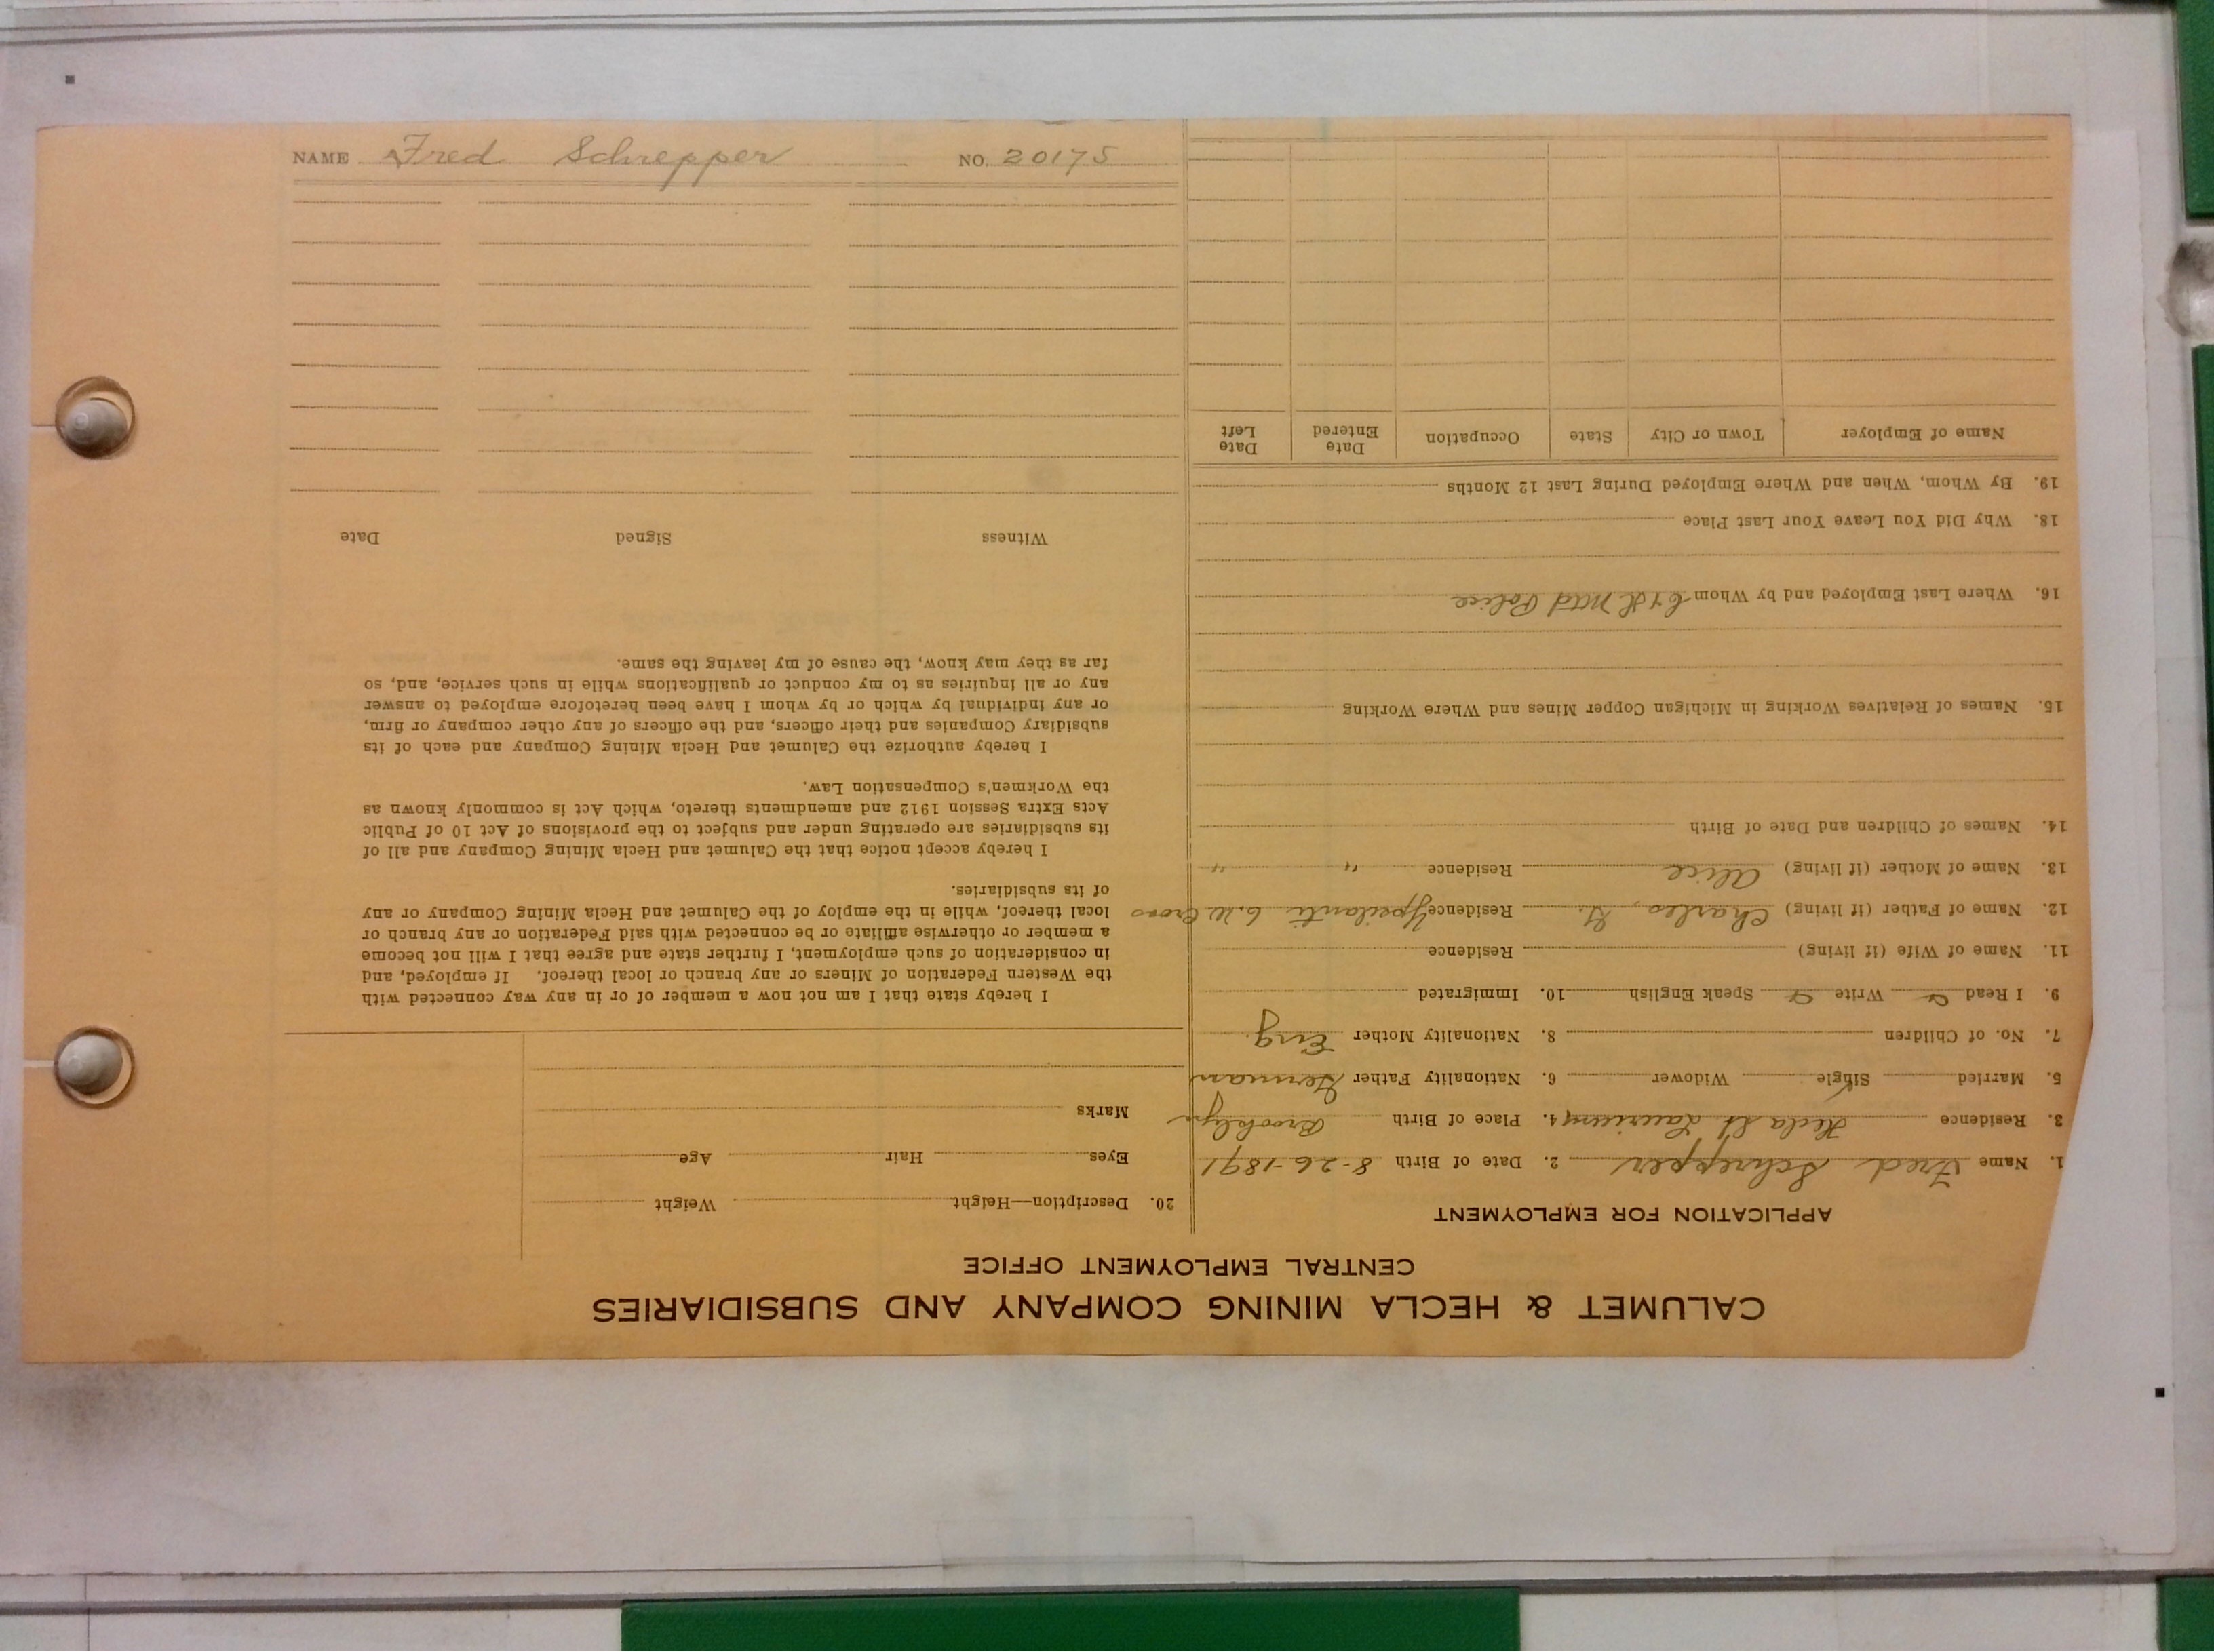 NAME Fred Schrepper NO. 20175
CALUMET & HECLA MINING COMPANY AND SUBSIDIARIES
CENTRAL EMPLOYMENT OFFICE
APPLICATION FOR EMPLOYMENT
1. Name Fred Schrepper 2. Date of Birth 8-26-1891
3. Residence Hecla St Laurium 4. Place of Birth Brooklyn
5. Married Single Widower 6. Nationality Father German
7. No. of Children 8. Nationality Mother Eng.
9. I Read Write Speak English 10. Immigrated
11. Name of Wife (if living) Residence
12. Name of Father (if living) Charles, Residence Ypsilanti
13. Name of Mother (if living) Alice Residence " "
14. Names of Children and Date of Birth
15. Names of Relatives Working in Michigan Copper Mines and Where Working
16. Where Last Employed and by Whom C & H Police
18. Why Did You Leave Your Last Place
19. By Whom, When and Where Employed During Last 12 Months
Name of Employer Town or City State Occupation Date Entered Date Left
20. Description—Height Weight
Eyes Hair Age
Marks
I hereby state that I am not now a member of or in any way connected with
the Western Federation of Miners or any branch or local thereof. If employed, and
in consideration of such employment, I further state and agree that I will not become
a member or otherwise affiliate or be connected with said Federation or any branch or
local thereof, while in the employ of the Calumet and Hecla Mining Company or any
of its subsidiaries.
I hereby accept notice that the Calumet and Hecla Mining Company and all of
its subsidiaries are operating under and subject to the provisions of Act 10 of Public
Acts Extra Session 1912 and amendments thereto, which Act is commonly known as
the Workmen's Compensation Law.
I hereby authorize the Calumet and Hecla Mining Company and each of its
subsidiary Companies and their officers, and the officers of any other company or firm,
or any individual by which or by whom I have been heretofore employed to answer
any or all inquiries as to my conduct or qualifications while in such service, and, so
far as they may know, the cause of my leaving the same.
Witness Signed Date